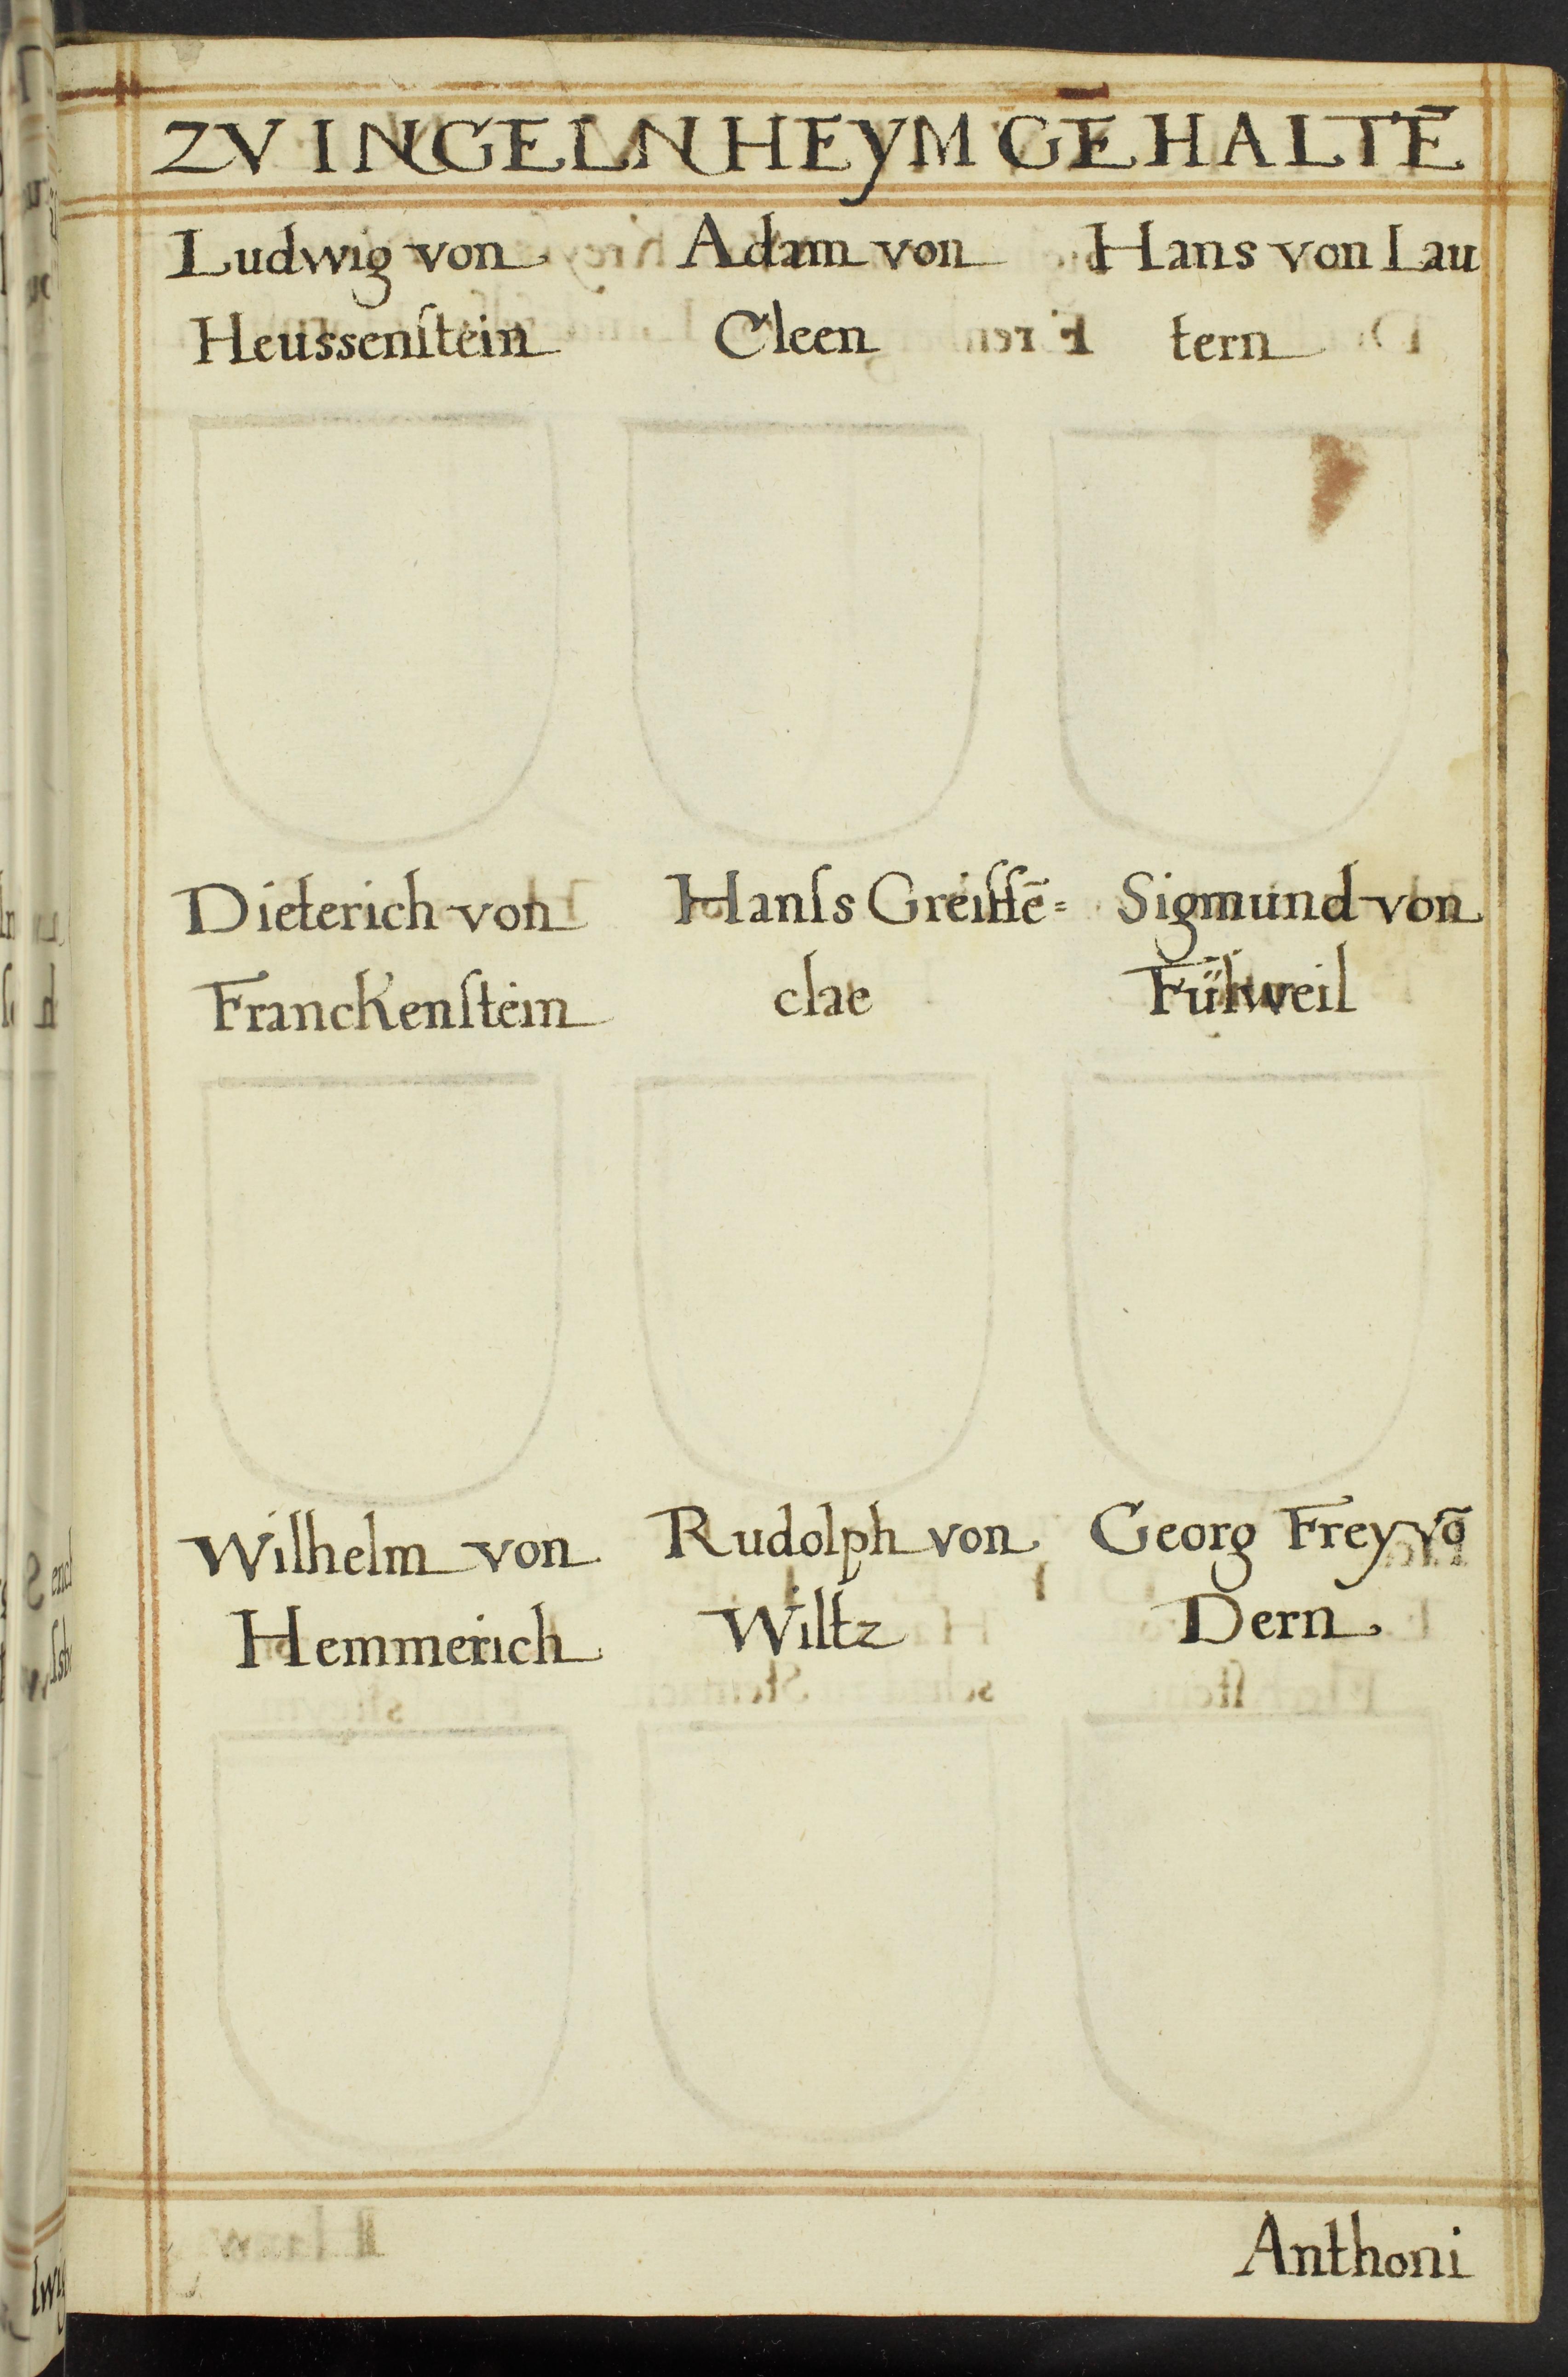 ZV INGELNHEYM GEHALTĒ
Ludwig von
Heussenſtein
Adam von
Cleen
Hans von Lau
tern
Dieterich von
Franckenſtein
Hanſs Greiffē=
clae
Sigmund von
Wilhelm von
Hemmerich
Rudolph von
Wiltz
Georg Frey võ
Dern
Anthoni